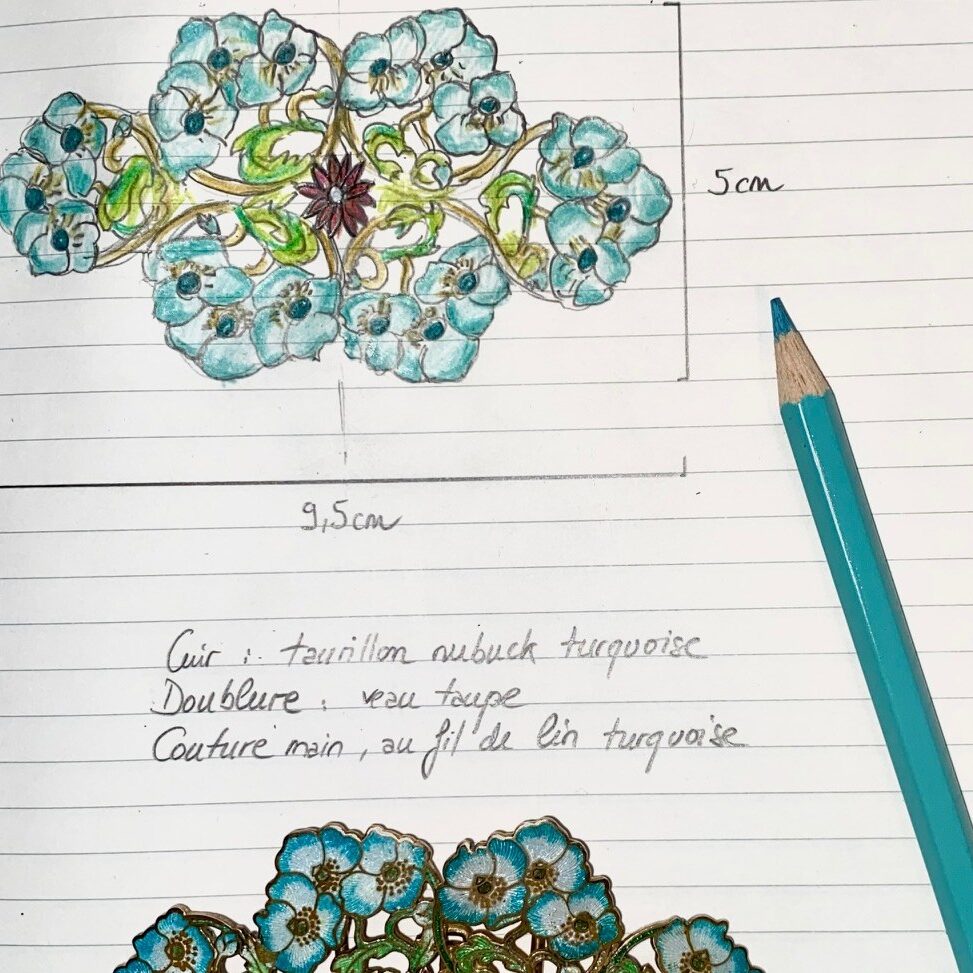 5cm
9,5cm
Cuir : taurillon nubuck turquoise
Doublure : veau taupe
Couture main, au fil de lin turquoise